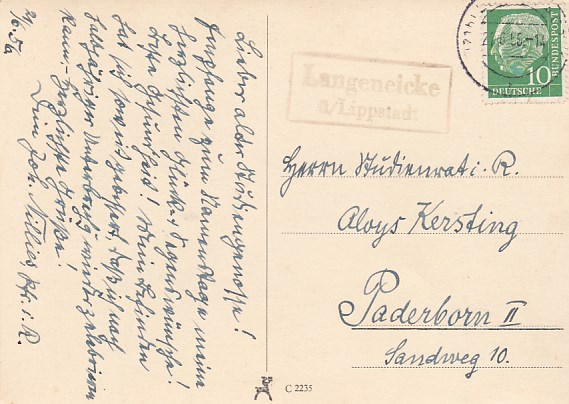 21/6. 5a
Lieber alter Studiengenosse!
Empfange zum Namenstage meine
herzlichsten Glück- u. Segenswünsche!
Gute Gesundheit! Mein Befinden
hat sich soweit gebessert, daß ich nach
halbjähriger Unterbrechg. wieder zelebrieren
kann. Herzliche Grüße!
Dein Joh. Nillies, Pfr. i. R.
Langeneicke
a/Lippstadt
10
DEUTSCHE
BUNDESPOST
Herrn Studienrat i. R.
Aloys Kersting
Paderborn II
Sandweg 10.
C 2235